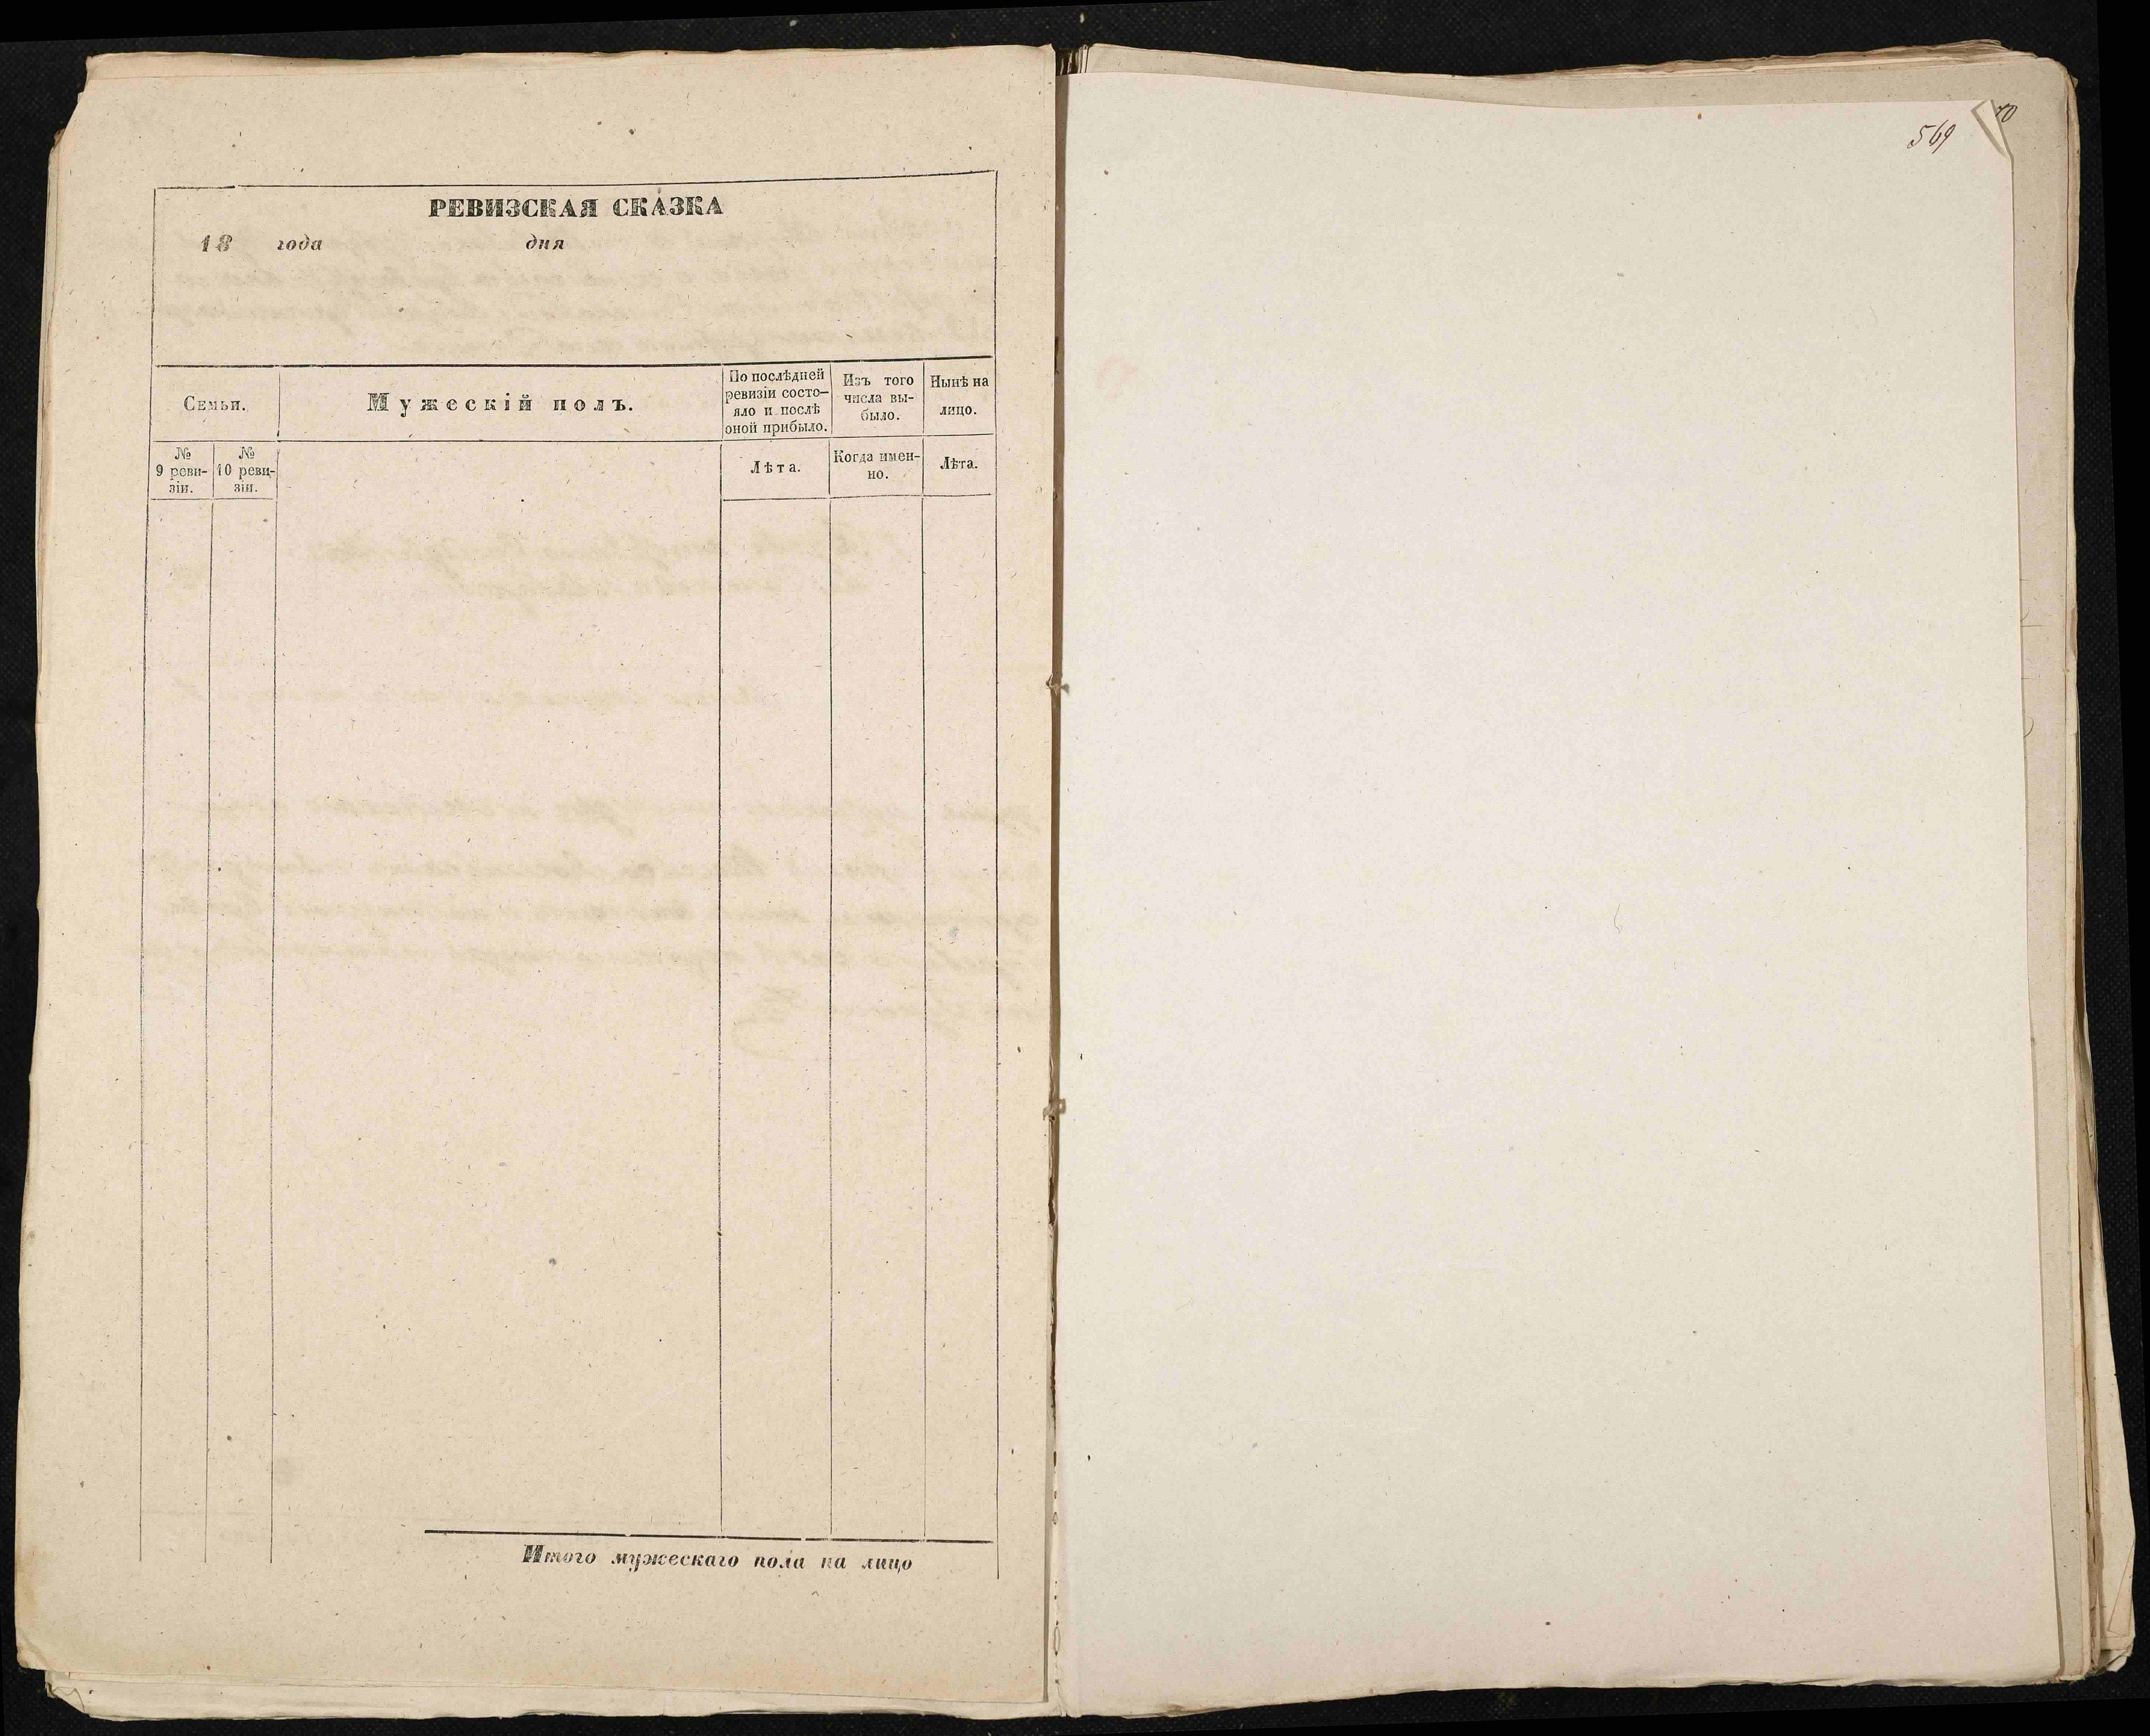 РЕВИЗСКАЯ СКАЗКА
18 года дня
Семьи.
Мужескій полъ.
По послѣдней
ревизіи состо-
яло и послѣ
оной прибыло.
Изъ того
числа вы-
было.
Нынѣ на
лицо.
№
9 реви-
зіи.
№
10 реви-
зіи.
Лѣта.
Когда имен-
но.
Лѣта.
Итого мужескаго пола на лицо
569
70